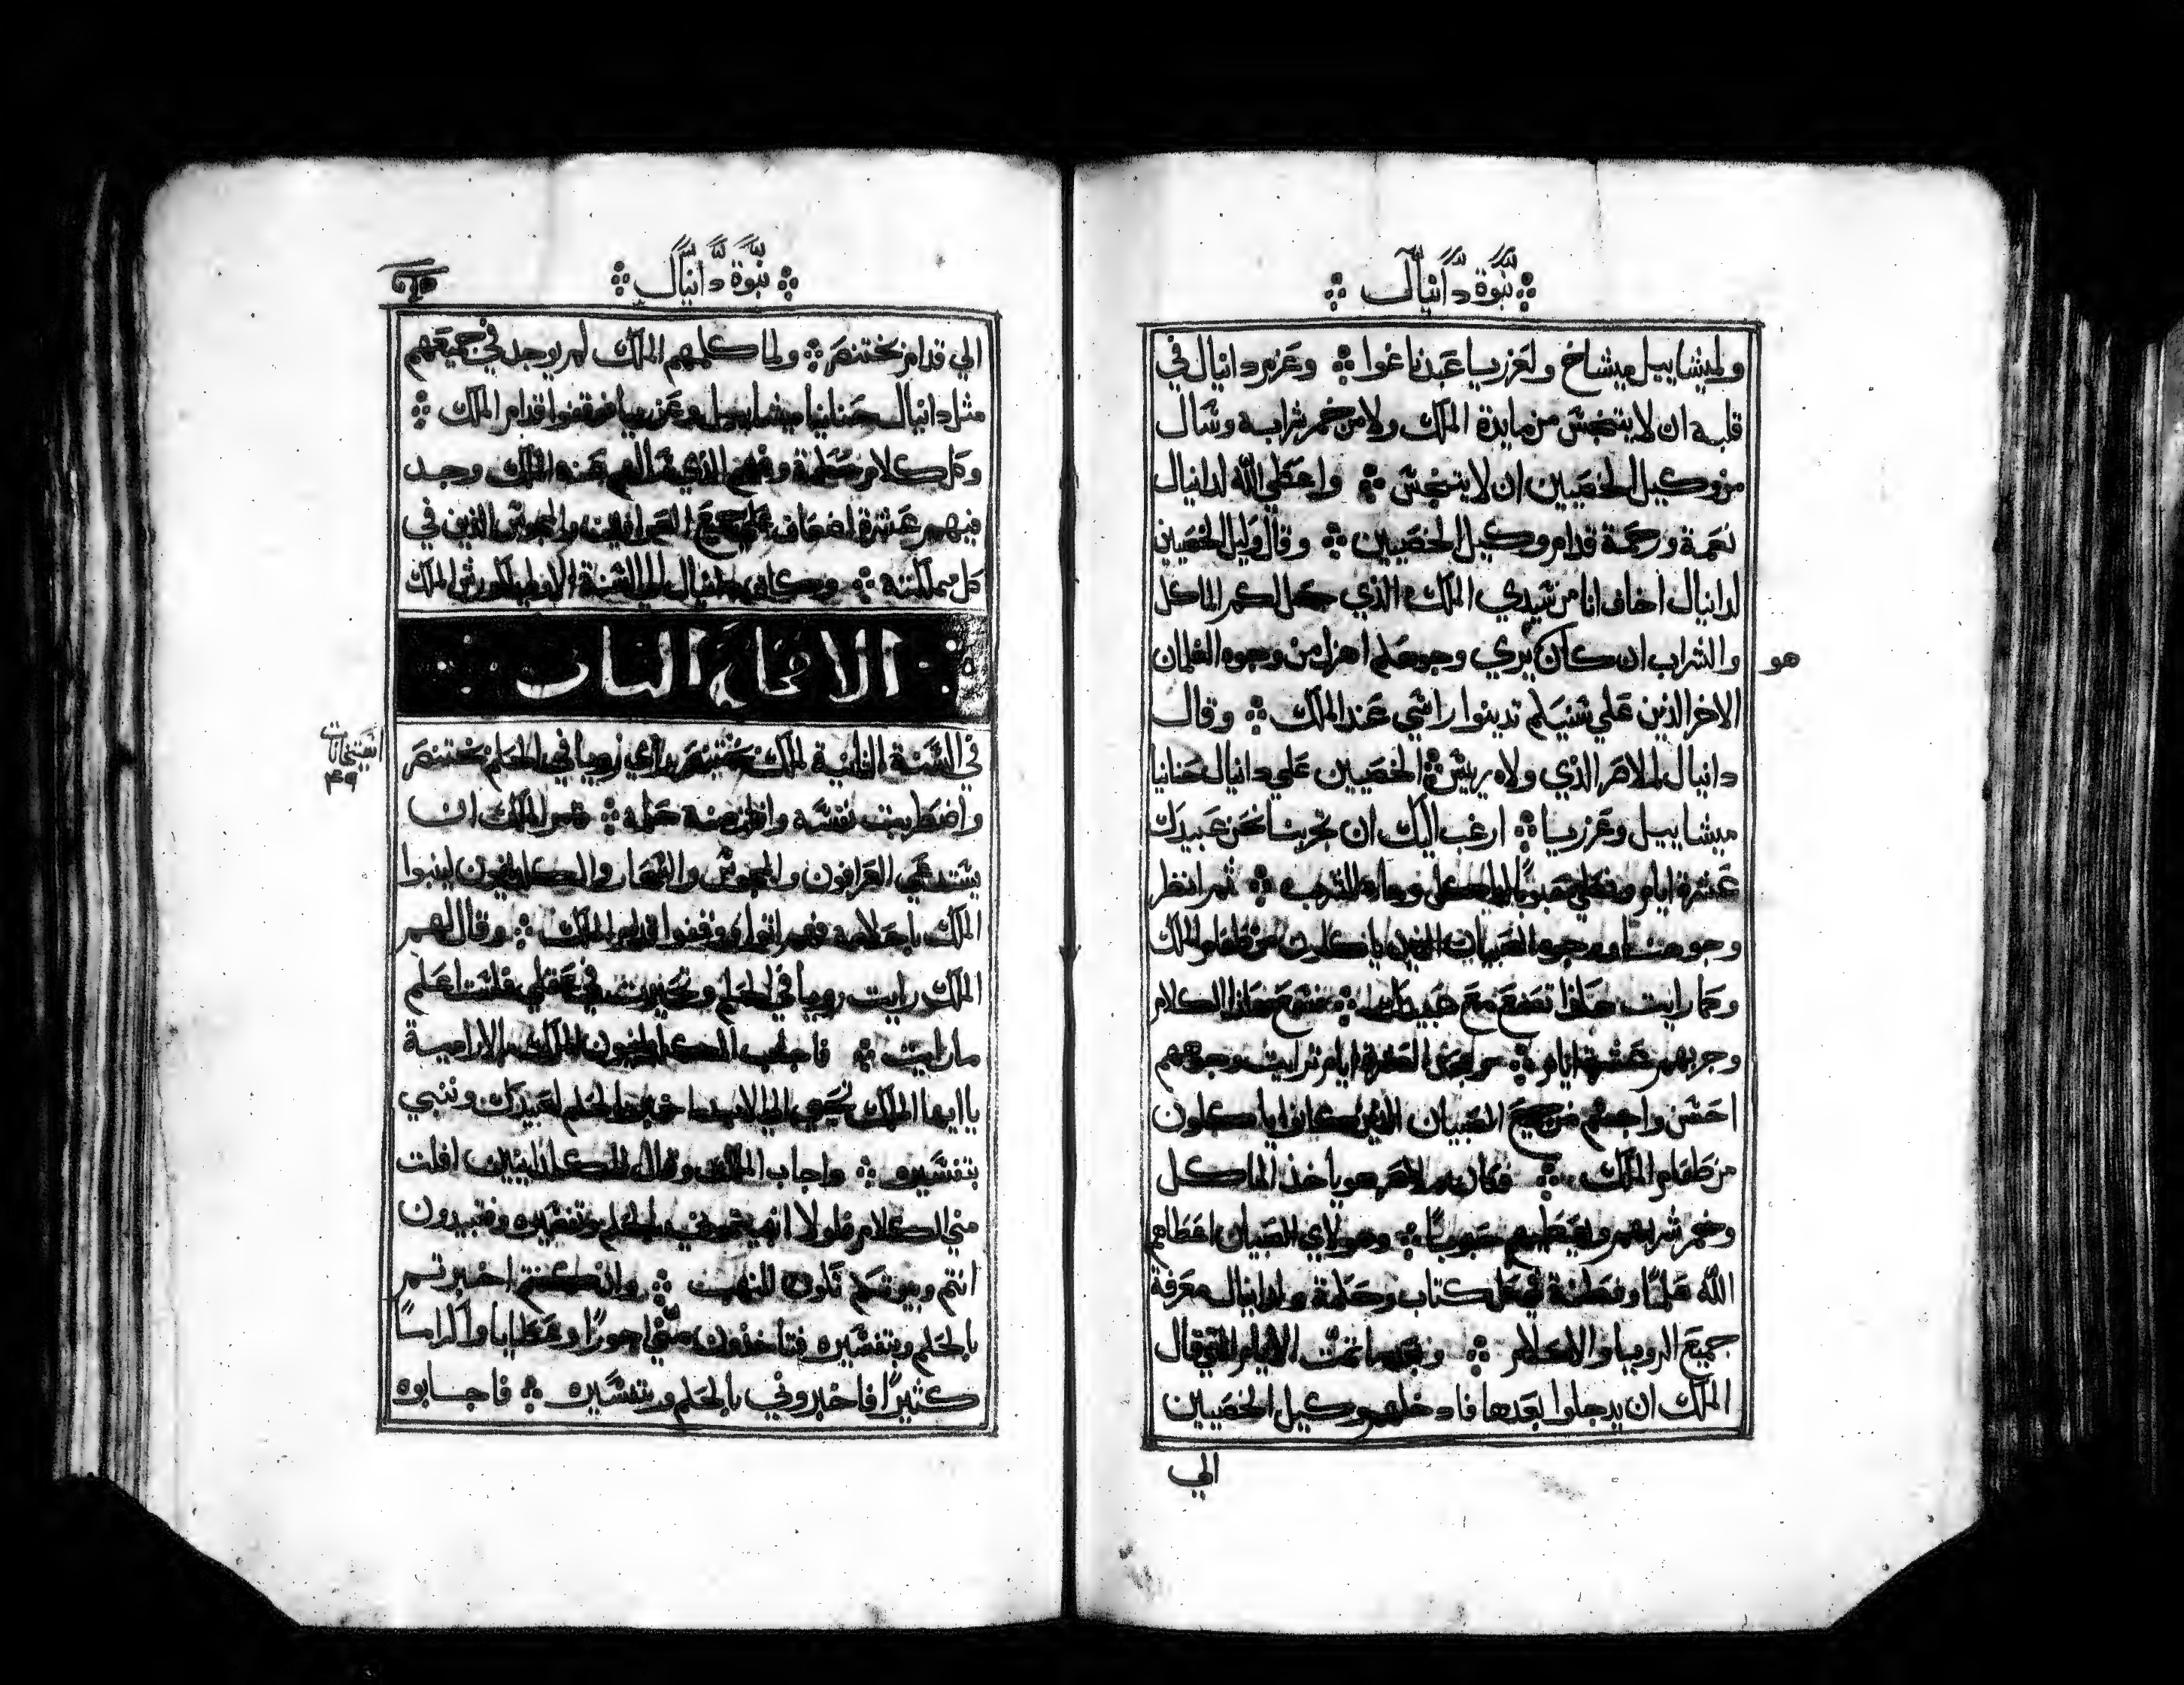 نبوة دانيال
ولميشاييل ميشاخ ولعزريا عبدناغوا وعزم دانيال في
قلبه ان لا يتنجس من مايدة الملك ولا من خمر شرابه وسال
من وكيل الخصيين ان لا يتنجس واعطي الله لدانيال
نعمة ورحمة قدام وكيل الخصيين وقال وكيل الخصيين
لدانيال اخاف انا من سيدي الملك الذي جعل لكم الماكل
والشراب ان كان يري وجوهكم اهزل من وجوه الغلمان
هو
الاخر الذين علي سنيكم تدينوا راسي عند الملك وقال
دانيال لملاصر الذي ولاه ريس الخصيين علي دانيال حنانيا
ميشاييل وعزريا ارغب اليك ان تجربنا نحن عبيدك
عشرة ايام ونعطي حبوبًا للماكل وماء للشرب ثم انظر
وجوهنا ووجوه الصبيان الذين ياكلون من طعام الملك
وكما رايت هكذا تصنع مع عبيدك فسمع هذا الكلام
وجربهم عشرة ايام ومن بعد العشرة ايام ترايت وجوههم
احسن واجسم من جميع الصبيان الذين كانوا ياكلون
من طعام الملك فكان ملاصر هو ياخذ الماكل
وخمر شرابهم ويعطيهم حبوبًا وهولاي الصبيان اعطاهم
الله علمًا وفطنة في كل كتاب وحكمة ولدانيال معرفة
جميع الرويا والاحلام وبعد ما تمت الايام التي قال
الملك ان يدخلوا بعدها فادخلهم وكيل الخصيين
الي
نبوة دانيال
الي قدام بختنصر ولما كلمهم الملك لم يوجد في جميعهم
مثل دانيال حنانيا ميشاييل وعزريا فوقفوا قدام الملك
وكل كلام حكمة وفهم الذي سالهم عنه الملك وجد
فيهم عشرة اضعاف علي جميع العرافين والمجوس الذين في
كل مملكته وكان دانيال الي السنة الاولي لكورش الملك
الاصحاح الثاني
في السنة الثانية لملك بختنصر راي رويا في الحلم بختنصر
واضطربت نفسه وانهزم منه حلمه فامر الملك ان
يستدعي العرافون والمجوس والسحار والكلدانيون لينبوا
الملك باحلامه فهم اتوا ووقفوا قدام الملك وقال لهم
الملك رايت رويا في الحلم وتحيرت في عقلي فلست اعلم
ما رايت فاجاب الكلدانيون الملك بالارامية
يا ايها الملك تحيي الي الابد اخبر بالحلم لعبيدك وننبي
بتفسيره واجاب الملك وقال للكلدانيين افلت
مني الكلام فلولا انتم تخبروني بالحلم وتفسيره فتبيدون
انتم وبيوتكم تكون للنهب وان كنتم اخبرتم
بالحلم وبتفسيره فتاخذون مني اجورًا وعطايا واكرامًا
كثيرًا فاخبروني بالحلم وبتفسيره فاجابوه